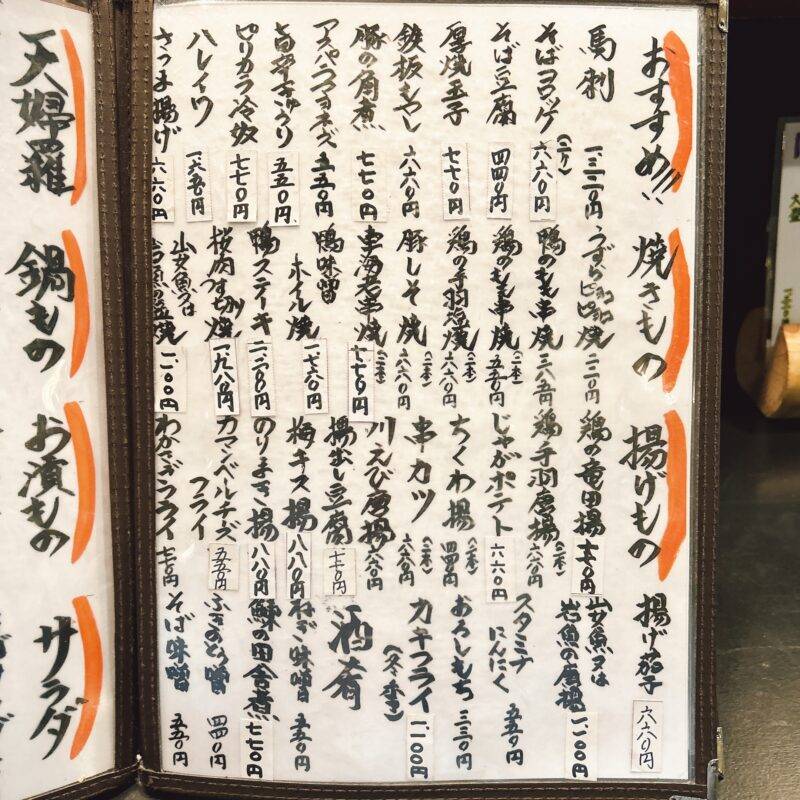 おすすめ!!
馬刺 一三二〇円
そばコロッケ(二ケ) 六六〇円
そば豆腐 四四〇円
厚焼玉子 七七〇円
鉄板もやし 六六〇円
豚の角煮 七七〇円
アスパラマヨネーズ 五五〇円
旨辛きゅうり 五五〇円
ピリカラ冷奴 七七〇円
ハレイワ 一六五〇円
さつま揚げ 六六〇円
焼きもの
うずらピョコピョコ焼 二二〇円
鴨のもも串焼 三八五円
鶏のもも串焼(二本) 五五〇円
鶏の手羽塩焼(二本) 六六〇円
豚しそ焼(二本) 六六〇円
串海老串焼(二本) 七七〇円
鴨味噌ホイル焼 一七六〇円
鴨ステーキ 二二〇〇円
桜肉つけ焼 一九八〇円
山女魚又は岩魚の塩焼 一一〇〇円
揚げもの
鶏の竜田揚 七七〇円
鶏手羽唐揚(二本) 六六〇円
じゃがポテト 六六〇円
ちくわ揚(二本) 四四〇円
串カツ(二本) 六六〇円
川えび唐揚 六六〇円
揚出し豆腐 七七〇円
梅キス揚 八八〇円
のりまき揚 八八〇円
カマンベールチーズフライ 五五〇円
わかさぎフライ 七七〇円
揚げ茄子 六六〇円
山女魚又は岩魚の唐揚 一一〇〇円
スタミナにんにく 五五〇円
おろしもち 三三〇円
カキフライ(冬季) 一一〇〇円
酒肴
ねぎ味噌 五五〇円
鰊の田舎煮 七七〇円
ふきのとう味噌 四四〇円
そば味噌 五五〇円
天婦羅
鍋もの
お漬もの
サラダ